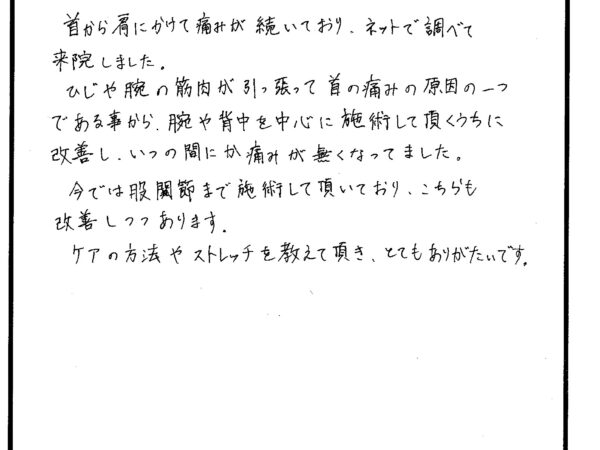 首から肩にかけて痛みが続いており、ネットで調べて
来院しました。
ひじや腕の筋肉が引っ張って首の痛みの原因の一つ
である事から、腕や背中を中心に施術して頂くうちに
改善し、いつの間にか痛みが無くなってました。
今では股関節まで施術して頂いており、こちらも
改善しつつあります。
ケアの方法やストレッチを教えて頂き、とてもありがたいです。